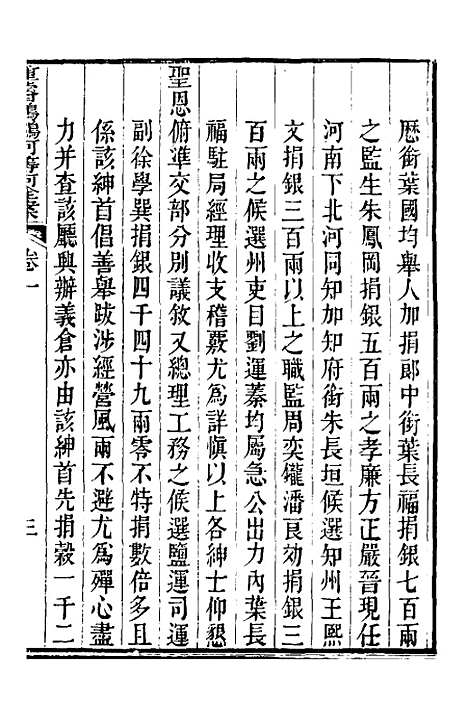 厯銜葉國均舉人加捐郎中銜葉長福捐銀七百兩
之監生朱鳳岡捐銀五百兩之孝廉方正嚴晉現任
河南下北河同知加知府銜朱長垣候選知州王熙
文捐銀三百兩以上之職監周奕鑨潘良効捐銀三
百兩之候選州吏目劉運蓁均屬急公出力內葉長
福駐局經理收支稽覈尤爲詳愼以上各紳士仰懇
聖恩俯準交部分別議敘又總理工務之候選鹽運司運
副徐學巽捐銀四千四十九兩零不特捐數倍多且
係該紳首倡善舉跋涉經營風雨不避尤爲殫心盡
力并查該廳興辦義倉亦由該紳首先捐穀一千二
河等河全案
卷一
三